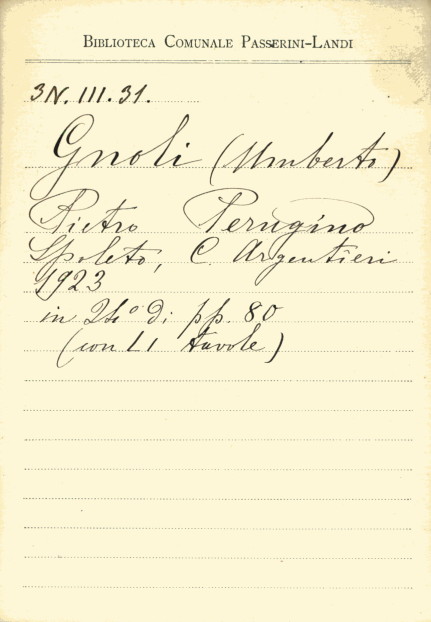 BIBLIOTECA COMUNALE PASSERINI-LANDI
3N. III. 31.
Gnoli (Umberto)
Pietro Perugino
Spoleto, C. Argentieri
1923
in 24° di pp. 80
(con LI tavole)